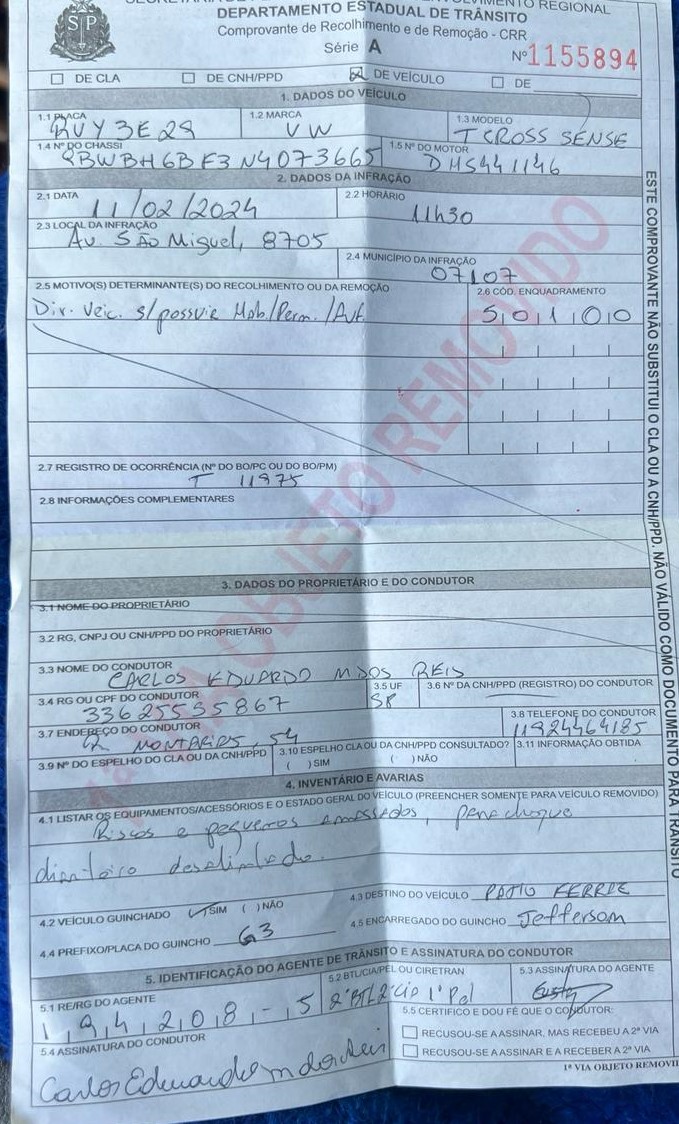 DEPARTAMENTO ESTADUAL DE TRÂNSITO
Comprovante de Recolhimento e de Remoção - CRR
Série A
Nº 1155894
DE CLA DE CNH/PPD DE VEÍCULO DE
1. DADOS DO VEÍCULO
1.1 PLACA 1.2 MARCA 1.3 MODELO
RUY3E29 VW T CROSS SENSE
1.4 Nº DO CHASSI 1.5 Nº DO MOTOR
9BWBH6BF3N4073665 DHS441146
2. DADOS DA INFRAÇÃO
2.1 DATA 2.2 HORÁRIO
11/02/2024 11h30
2.3 LOCAL DA INFRAÇÃO
Av. São Miguel, 8705
2.4 MUNICÍPIO DA INFRAÇÃO
07107
2.5 MOTIVO(S) DETERMINANTE(S) DO RECOLHIMENTO OU DA REMOÇÃO 2.6 CÓD. ENQUADRAMENTO
Dir. Veic. s/ possuir Hab/Perm./Aut. 5 0 1 0 0
2.7 REGISTRO DE OCORRÊNCIA (Nº DO BO/PC OU DO BO/PM)
T 11975
2.8 INFORMAÇÕES COMPLEMENTARES
3. DADOS DO PROPRIETÁRIO E DO CONDUTOR
3.1 NOME DO PROPRIETÁRIO
3.2 RG, CNPJ OU CNH/PPD DO PROPRIETÁRIO
3.3 NOME DO CONDUTOR
CARLOS EDUARDO M DOS REIS
3.4 RG OU CPF DO CONDUTOR 3.5 UF 3.6 Nº DA CNH/PPD (REGISTRO) DO CONDUTOR
33625595867 SP
3.7 ENDEREÇO DO CONDUTOR 3.8 TELEFONE DO CONDUTOR
54 11924464185
3.9 Nº DO ESPELHO DO CLA OU DA CNH/PPD 3.10 ESPELHO CLA OU DA CNH/PPD CONSULTADO? 3.11 INFORMAÇÃO OBTIDA
( ) SIM ( ) NÃO
4. INVENTÁRIO E AVARIAS
4.1 LISTAR OS EQUIPAMENTOS/ACESSÓRIOS E O ESTADO GERAL DO VEÍCULO (PREENCHER SOMENTE PARA VEÍCULO REMOVIDO)
Riscos e pequenos amassados, parachoque
dianteiro desalinhado.
4.2 VEÍCULO GUINCHADO SIM ( ) NÃO 4.3 DESTINO DO VEÍCULO PATIO
4.4 PREFIXO/PLACA DO GUINCHO G3 4.5 ENCARREGADO DO GUINCHO Jefferson
5. IDENTIFICAÇÃO DO AGENTE DE TRÂNSITO E ASSINATURA DO CONDUTOR
5.1 RE/RG DO AGENTE 5.2 BTL/CIA/PEL OU CIRETRAN 5.3 ASSINATURA DO AGENTE
1 9 4 2 0 8 - 5 2º BTL 2ª Cia 1º Pel
5.4 ASSINATURA DO CONDUTOR 5.5 CERTIFICO E DOU FÉ QUE O CONDUTOR:
RECUSOU-SE A ASSINAR, MAS RECEBEU A 2ª VIA
RECUSOU-SE A ASSINAR E A RECEBER A 2ª VIA
Carlos Eduardo m dos Reis
1ª VIA OBJETO REMOVID
ESTE COMPROVANTE NÃO SUBSTITUI O CLA OU A CNH/PPD. NÃO VÁLIDO COMO DOCUMENTO PARA TRÂNSITO
1ª VIA OBJETO REMOVIDO